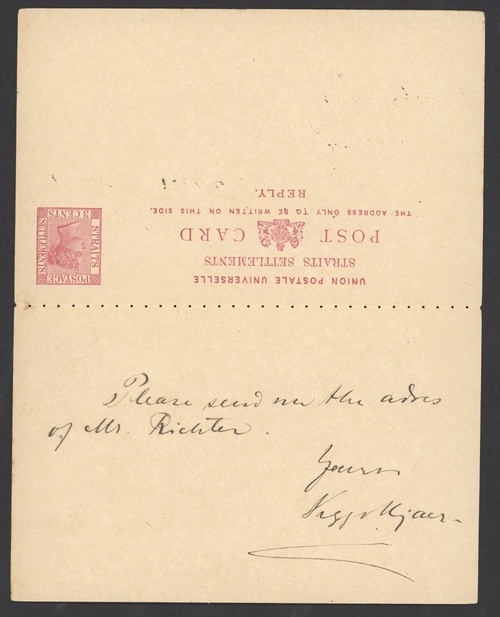 UNION POSTALE UNIVERSELLE
STRAITS SETTLEMENTS
POST CARD
THE ADDRESS ONLY TO BE WRITTEN ON THIS SIDE.
REPLY.
POSTAGE
STRAITS
SETTLEMENTS
3 CENTS
Please send me the adres
of Mr. Richter.
Yours
Viggo Kjaer